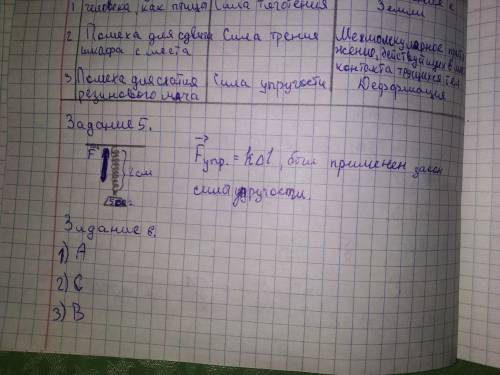 1 человека, как птица Сила тяготения Земли
2 Помеха для сдвига шкафа с места Сила трения Межмолекулярное контакта трущихся тел
3 Помеха для сжатия резинового мяча Сила упругости Деформация
Задание 5.
F
2см
Fупр. = kΔl, был применен закон
силы упругости.
Задание 6.
1) А
2) С
3) В